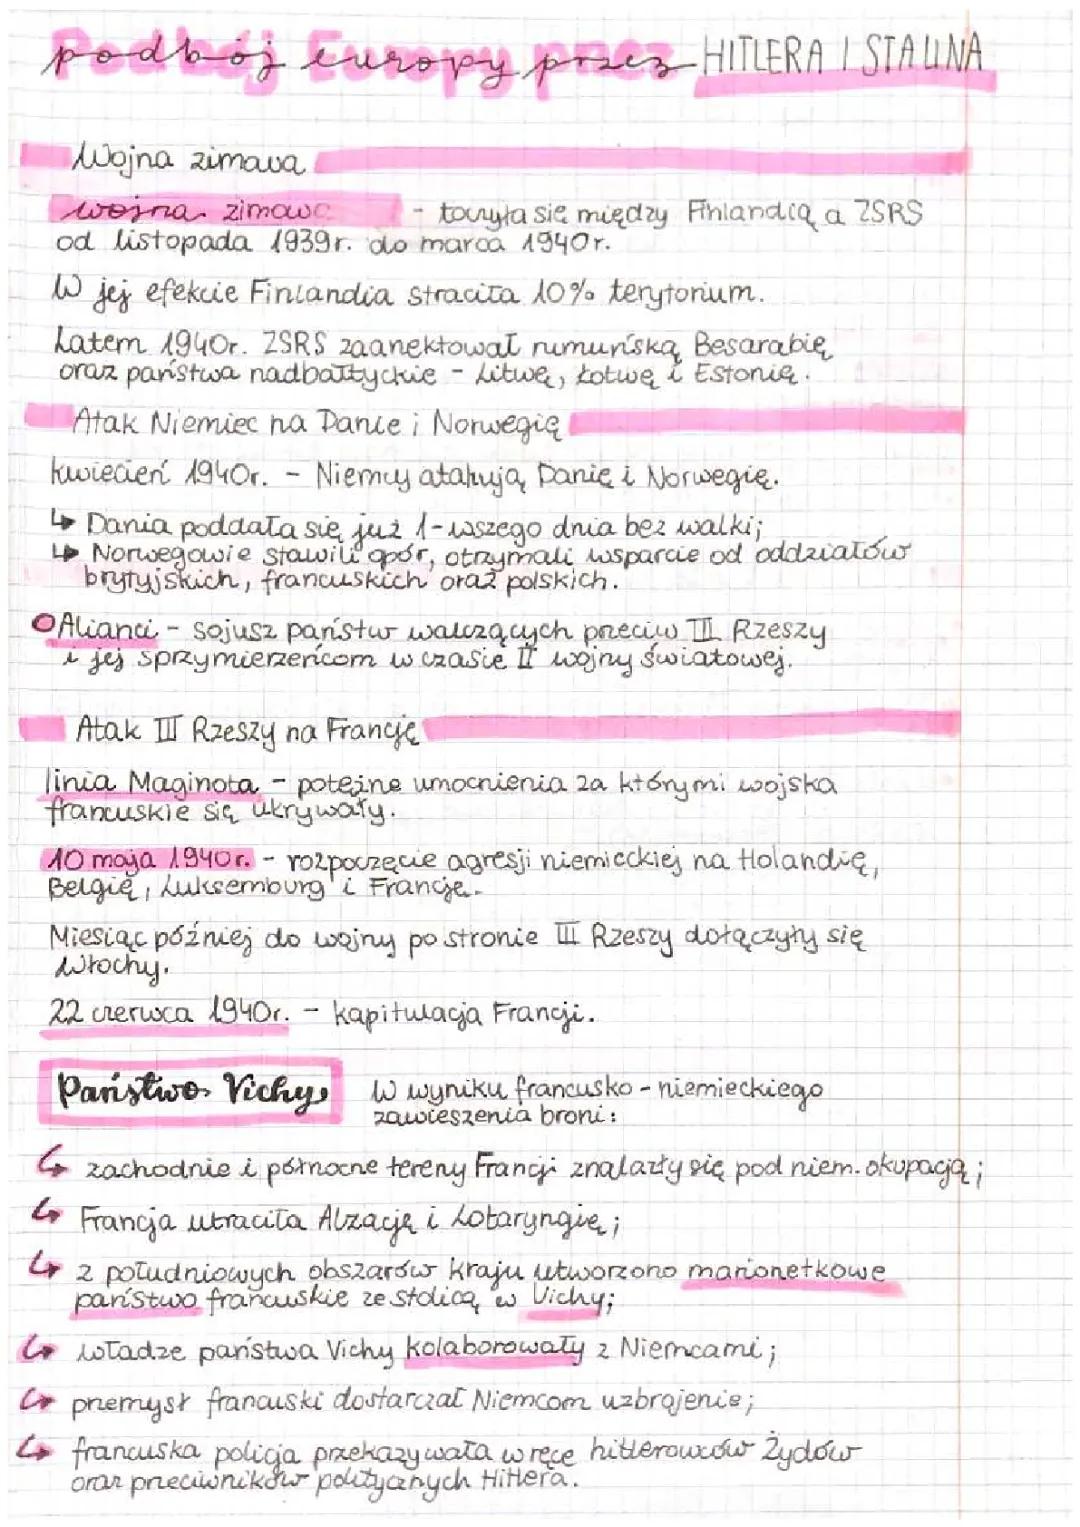 podbój europy przez HITLERA I STALINA
Wojna zimowa
wojna zimowa - toczyła się między Finlandią a ZSRS
od listopada 1939r. do marca 1940r.
W jej efekcie Finlandia straciła 10% terytorium.
Latem 1940r. ZSRS zaanektował rumuńską Besarabię
oraz państwa nadbałtyckie - Litwę, Łotwę i Estonię.
Atak Niemiec na Danie i Norwegię
kwiecień 1940r. - Niemcy atakują Danię i Norwegię.
↳ Dania poddała się już 1-wszego dnia bez walki;
↳ Norwegowie stawili opór, otrzymali wsparcie od oddziałów
brytyjskich, francuskich oraz polskich.
Alianci - sojusz państw walczących przeciw III Rzeszy
i jej sprzymierzeńcom w czasie II wojny światowej.
Atak III Rzeszy na Francję
linia Maginota - potężne umocnienia za którymi wojska
francuskie się ukrywały.
10 maja 1940r. - rozpoczęcie agresji niemieckiej na Holandię,
Belgię, Luksemburg i Francję.
Miesiąc później do wojny po stronie III Rzeszy dołączyły się
Włochy.
22 czerwca 1940r. - kapitulacja Francji.
Państwo Vichy W wyniku francusko-niemieckiego
zawieszenia broni:
↳ zachodnie i północne tereny Francji znalazły się pod niem. okupacją;
↳ Francja utraciła Alzację i Lotaryngię;
↳ z południowych obszarów kraju utworzono marionetkowe
państwo francuskie ze stolicą w Vichy;
↳ władze państwa Vichy kolaborowały z Niemcami;
↳ przemysł francuski dostarczał Niemcom uzbrojenie;
↳ francuska policja przekazywała w ręce hitlerowców Żydów
oraz przeciwników politycznych Hitlera.